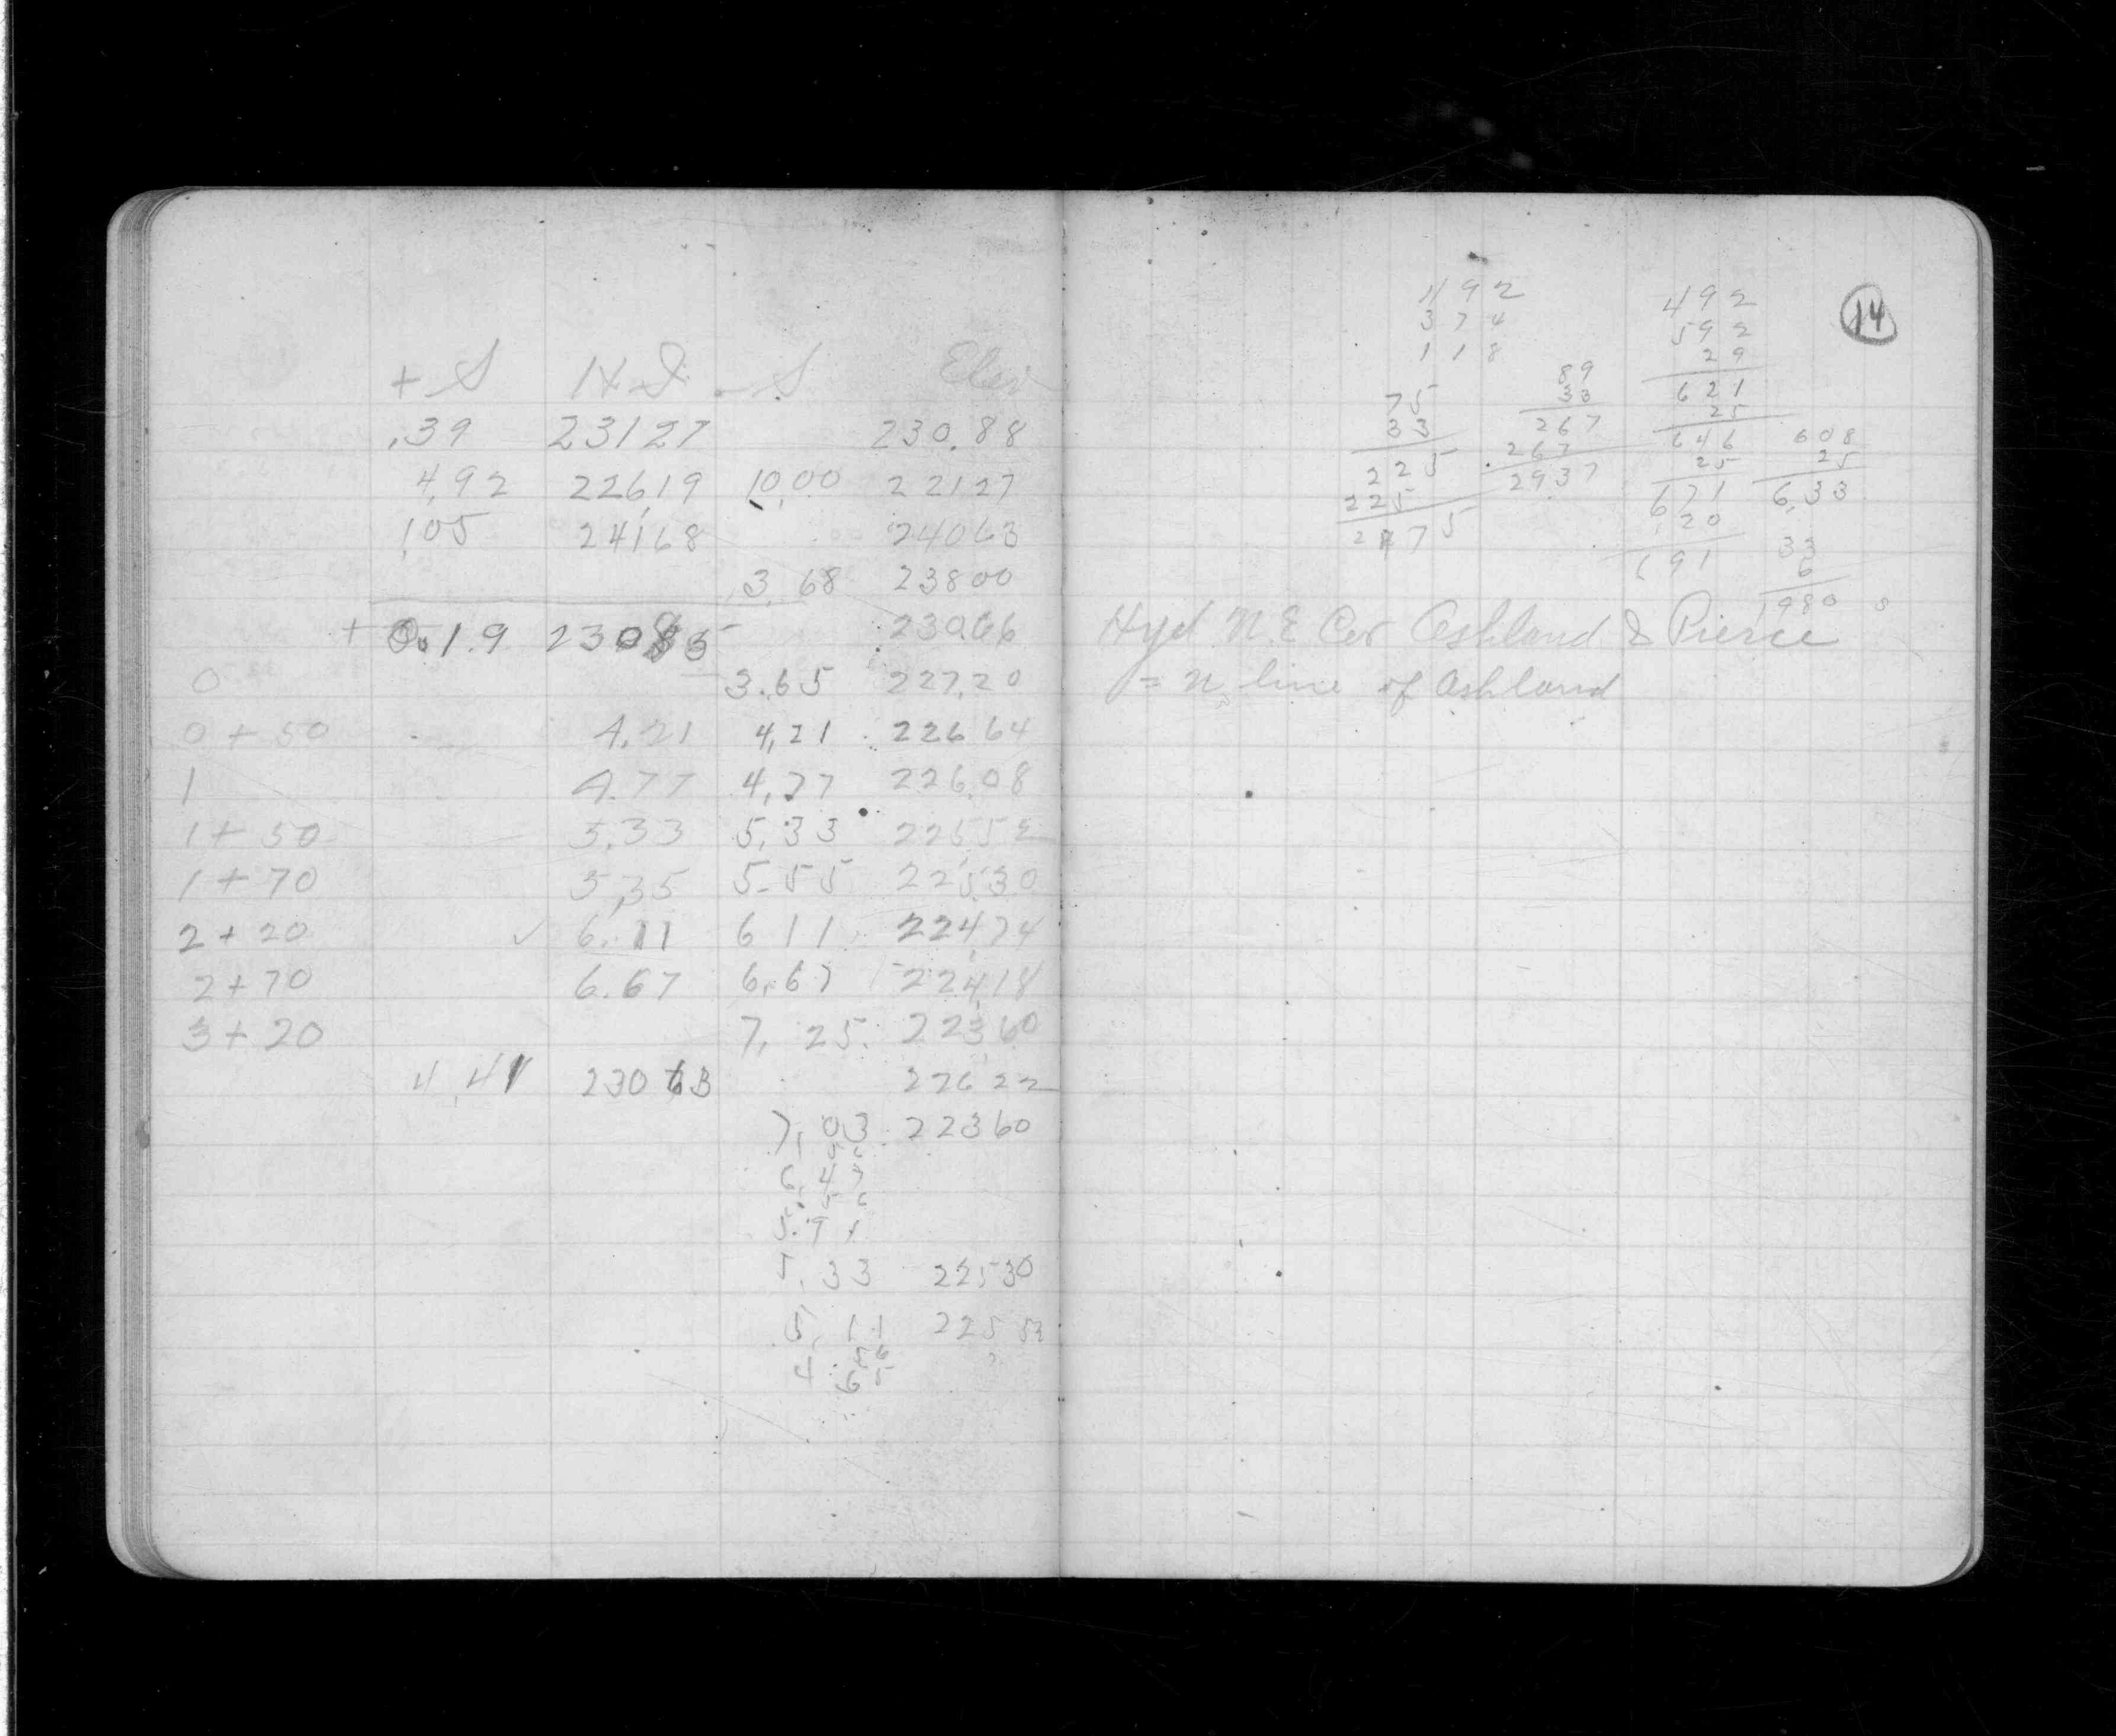 + S H I - S Elev
.39 231 27 230.88
4,92 226,19 10,00 221 27
1,05 241,68 240 63
3,68 238 00
+ 0.19 230 85 230.66
0 3.65 227,20
0 + 50 4.21 4,21 226 64
1 4.77 4,77 226,08
1 + 50 5,33 5,33 225,52
1 + 70 5,35 5.55 225,30
2 + 20 ✓ 6.11 6 11 224,74
2 + 70 6.67 6.67 224,18
3 + 20 7, 25 223,60
4,41 230 63 226 22
7, 03 223 60
6, 47
5 6
5.91
5, 33 225 30
5, 11 225 52
4 65
14
492
374
118
75
33
225
225
2475
89
33
267
267
2937
492
592
29
621
25
646
25
671
20
691
608
25
6,33
33
6
1980
Hyd N.E Cor Ashland & Pierce
= N, line of Ashland